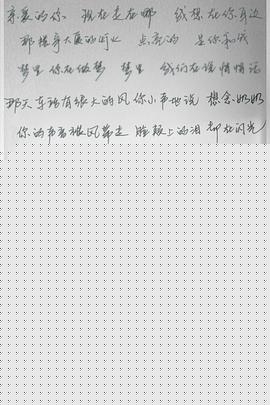 亲爱的你 现在走在哪 我想在你身边
那棵亭大厦的灯火 点亮的 是你和我
梦里 你在做梦 梦里 我们在说悄悄话
那天 车站有很大的风 你小声地说 想念奶奶
你的声音被风带走 脸颊上的泪 都在闪光